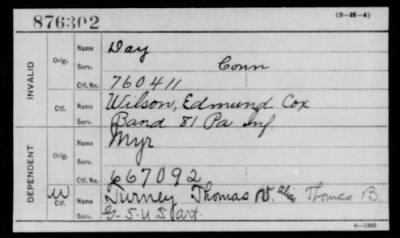 876302
(3-H-4)
INVALID
Orig.
Name Day
Serv. Conn
Ctf. No. 760411
Ctf.
Name Wilson, Edmund Cox
Serv. Band 81 Pa Inf
DEPENDENT
Orig.
Name Myr
Serv.
Ctf. No. 667092
W
Ctf.
Name Turney Thomas W. alias Thomas B.
Serv. G-5 U S art.